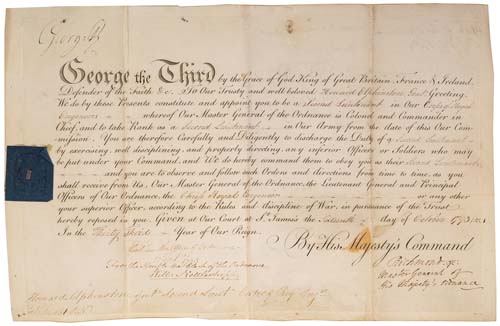 George R
George the Third by the Grace of God King of Great Britain, France & Ireland,
Defender of the Faith &c. To Our Trusty and well-beloved Howard Elphinstone, Gent. Greeting.
We do by these Presents constitute and appoint you to be a Second Lieutenant in Our Corps of Royal
Engineers whereof Our Master General of the Ordnance is Colonel and Commander in
Chief, and to take Rank as a Second Lieutenant in Our Army from the date of this Our Com-
mission. You are therefore Carefully and Diligently to discharge the Duty of a Second Lieutenant
by exercising, well disciplining, and properly directing, any inferior Officers or Soldiers who may
be put under your Command, and We do hereby command them to obey you as their Second Lieutenant
and you are to observe and follow such Orders and directions from time to time, as you
shall receive from Us, Our Master General of the Ordnance, the Lieutenant General and Principal
Officers of Our Ordnance, the Chief Royal or any other
your superior Officer, according to the Rules and discipline of War, in pursuance of the Trust
hereby reposed in you. Given at Our Court at St. James's the day of October 1793
In the Thirty Third Year of Our Reign.
By His Majesty's Command
Richmond &c.
Master General of
His Majesty's Ordnance
Howard Elphinstone Gent. Second Lieut.